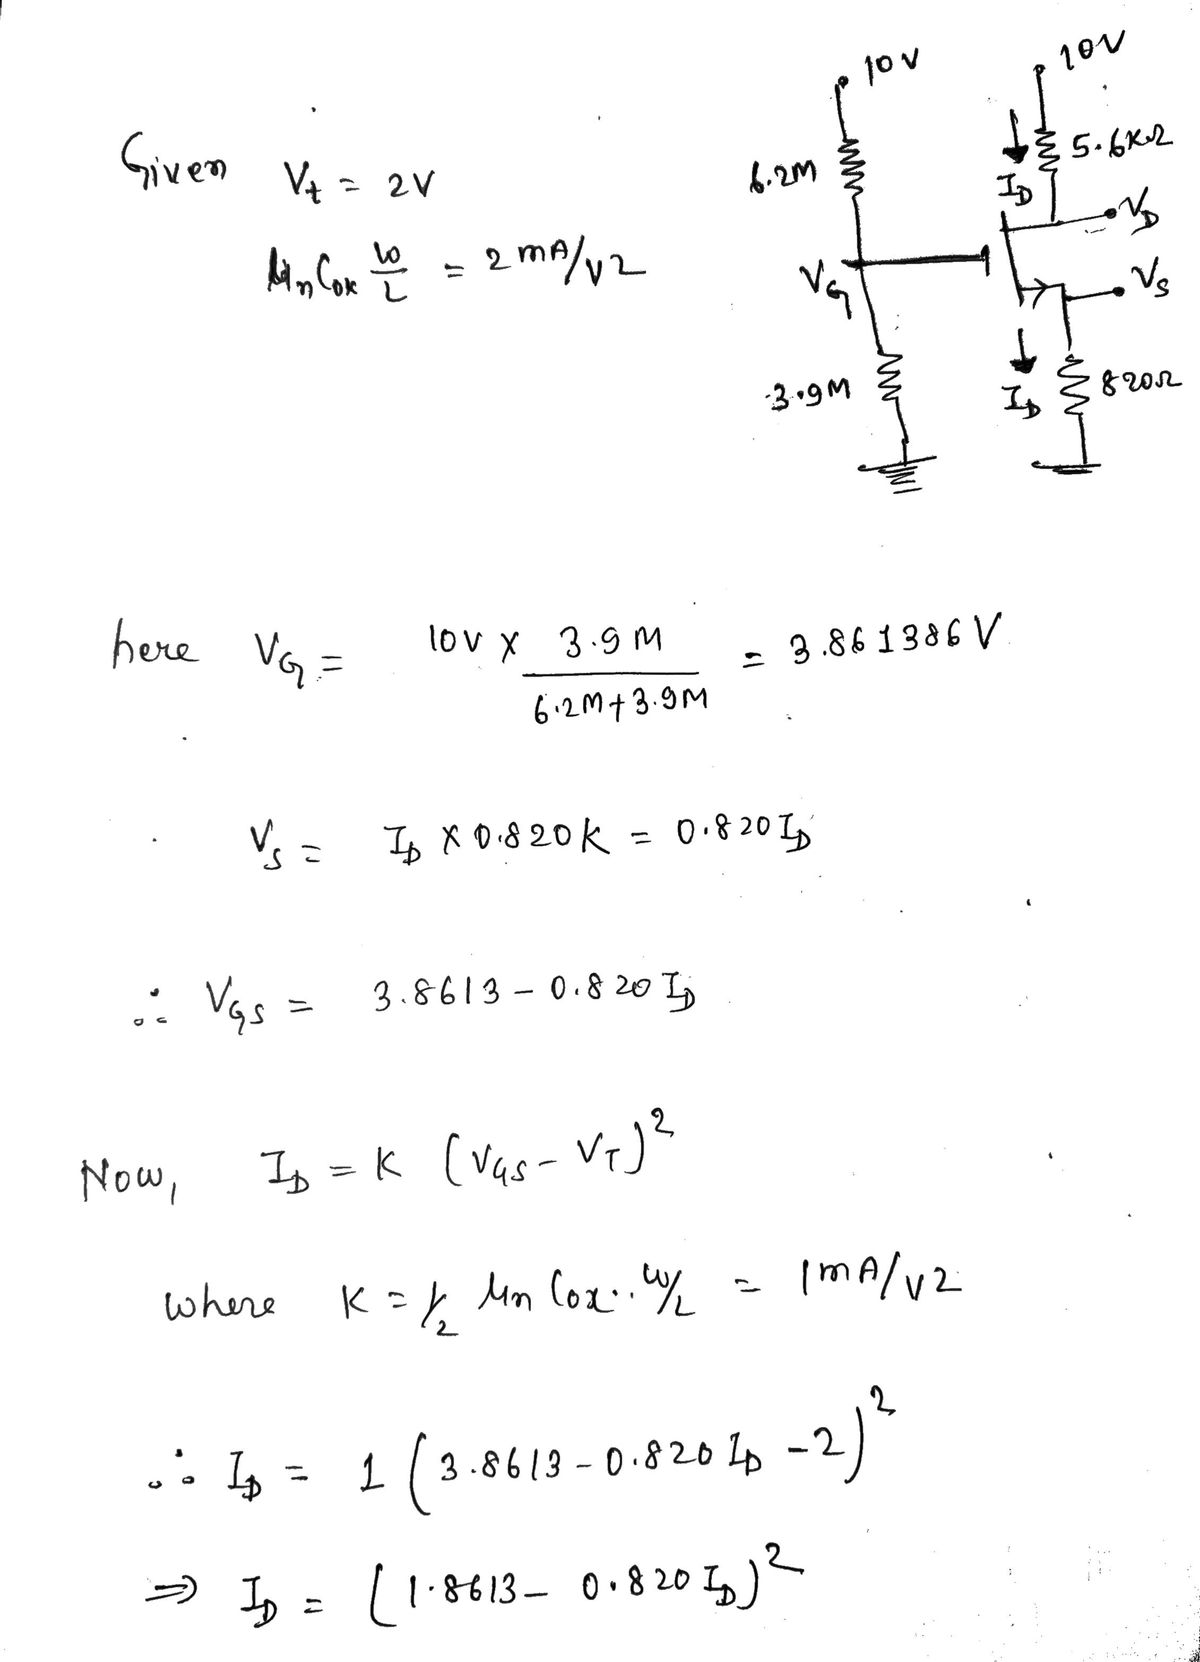 10V
10V
Given Vt = 2V
6.2M
ID
5.6KΩ
VD
μn Cox W/L = 2 mA/V2
VG
VS
3.9M
ID
820Ω
here VG = 10V x 3.9M / 6.2M+3.9M = 3.861386 V
VS = ID x 0.820K = 0.820 ID
∴ VGS = 3.8613 - 0.820 ID
Now, ID = K (VGS - VT)2
where K = 1/2 μn Cox . W/L = 1mA/V2
∴ ID = 1 (3.8613 - 0.820 ID - 2)2
⇒ ID = (1.8613 - 0.820 ID)2